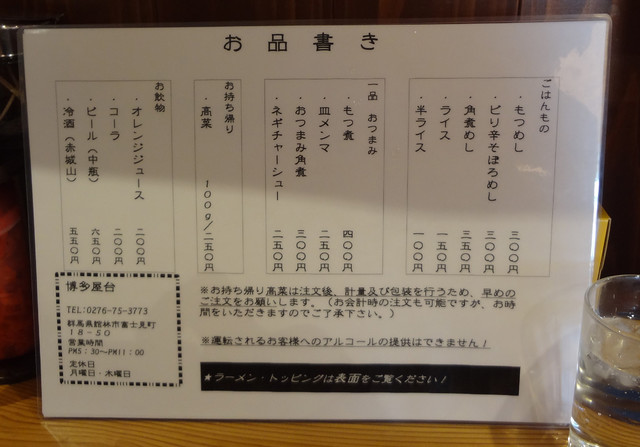 お品書き
ごはんもの
・もつめし 三〇〇円
・ピリ辛そぼろめし 三〇〇円
・角煮めし 三五〇円
・ライス 一五〇円
・半ライス 一〇〇円
一品 おつまみ
・もつ煮 四〇〇円
・皿メンマ 二五〇円
・おつまみ角煮 三〇〇円
・ネギチャーシュー 二五〇円
お持ち帰り
・高菜 100g/二五〇円
お飲物
・オレンジジュース 二〇〇円
・コーラ 二〇〇円
・ビール(中瓶) 六五〇円
・冷酒(赤城山) 五五〇円
博多屋台
TEL:0276-75-3773
群馬県館林市富士見町
18-50
営業時間
PM5:30~PM11:00
定休日
月曜日・木曜日
※お持ち帰り高菜は注文後、計量及び包装を行うため、早めの
ご注文をお願いします。(お会計時の注文も可能ですが、お時
間をいただきますのでご了承下さい。)
※運転されるお客様へのアルコールの提供はできません!
★ラーメン・トッピングは表面をご覧ください!